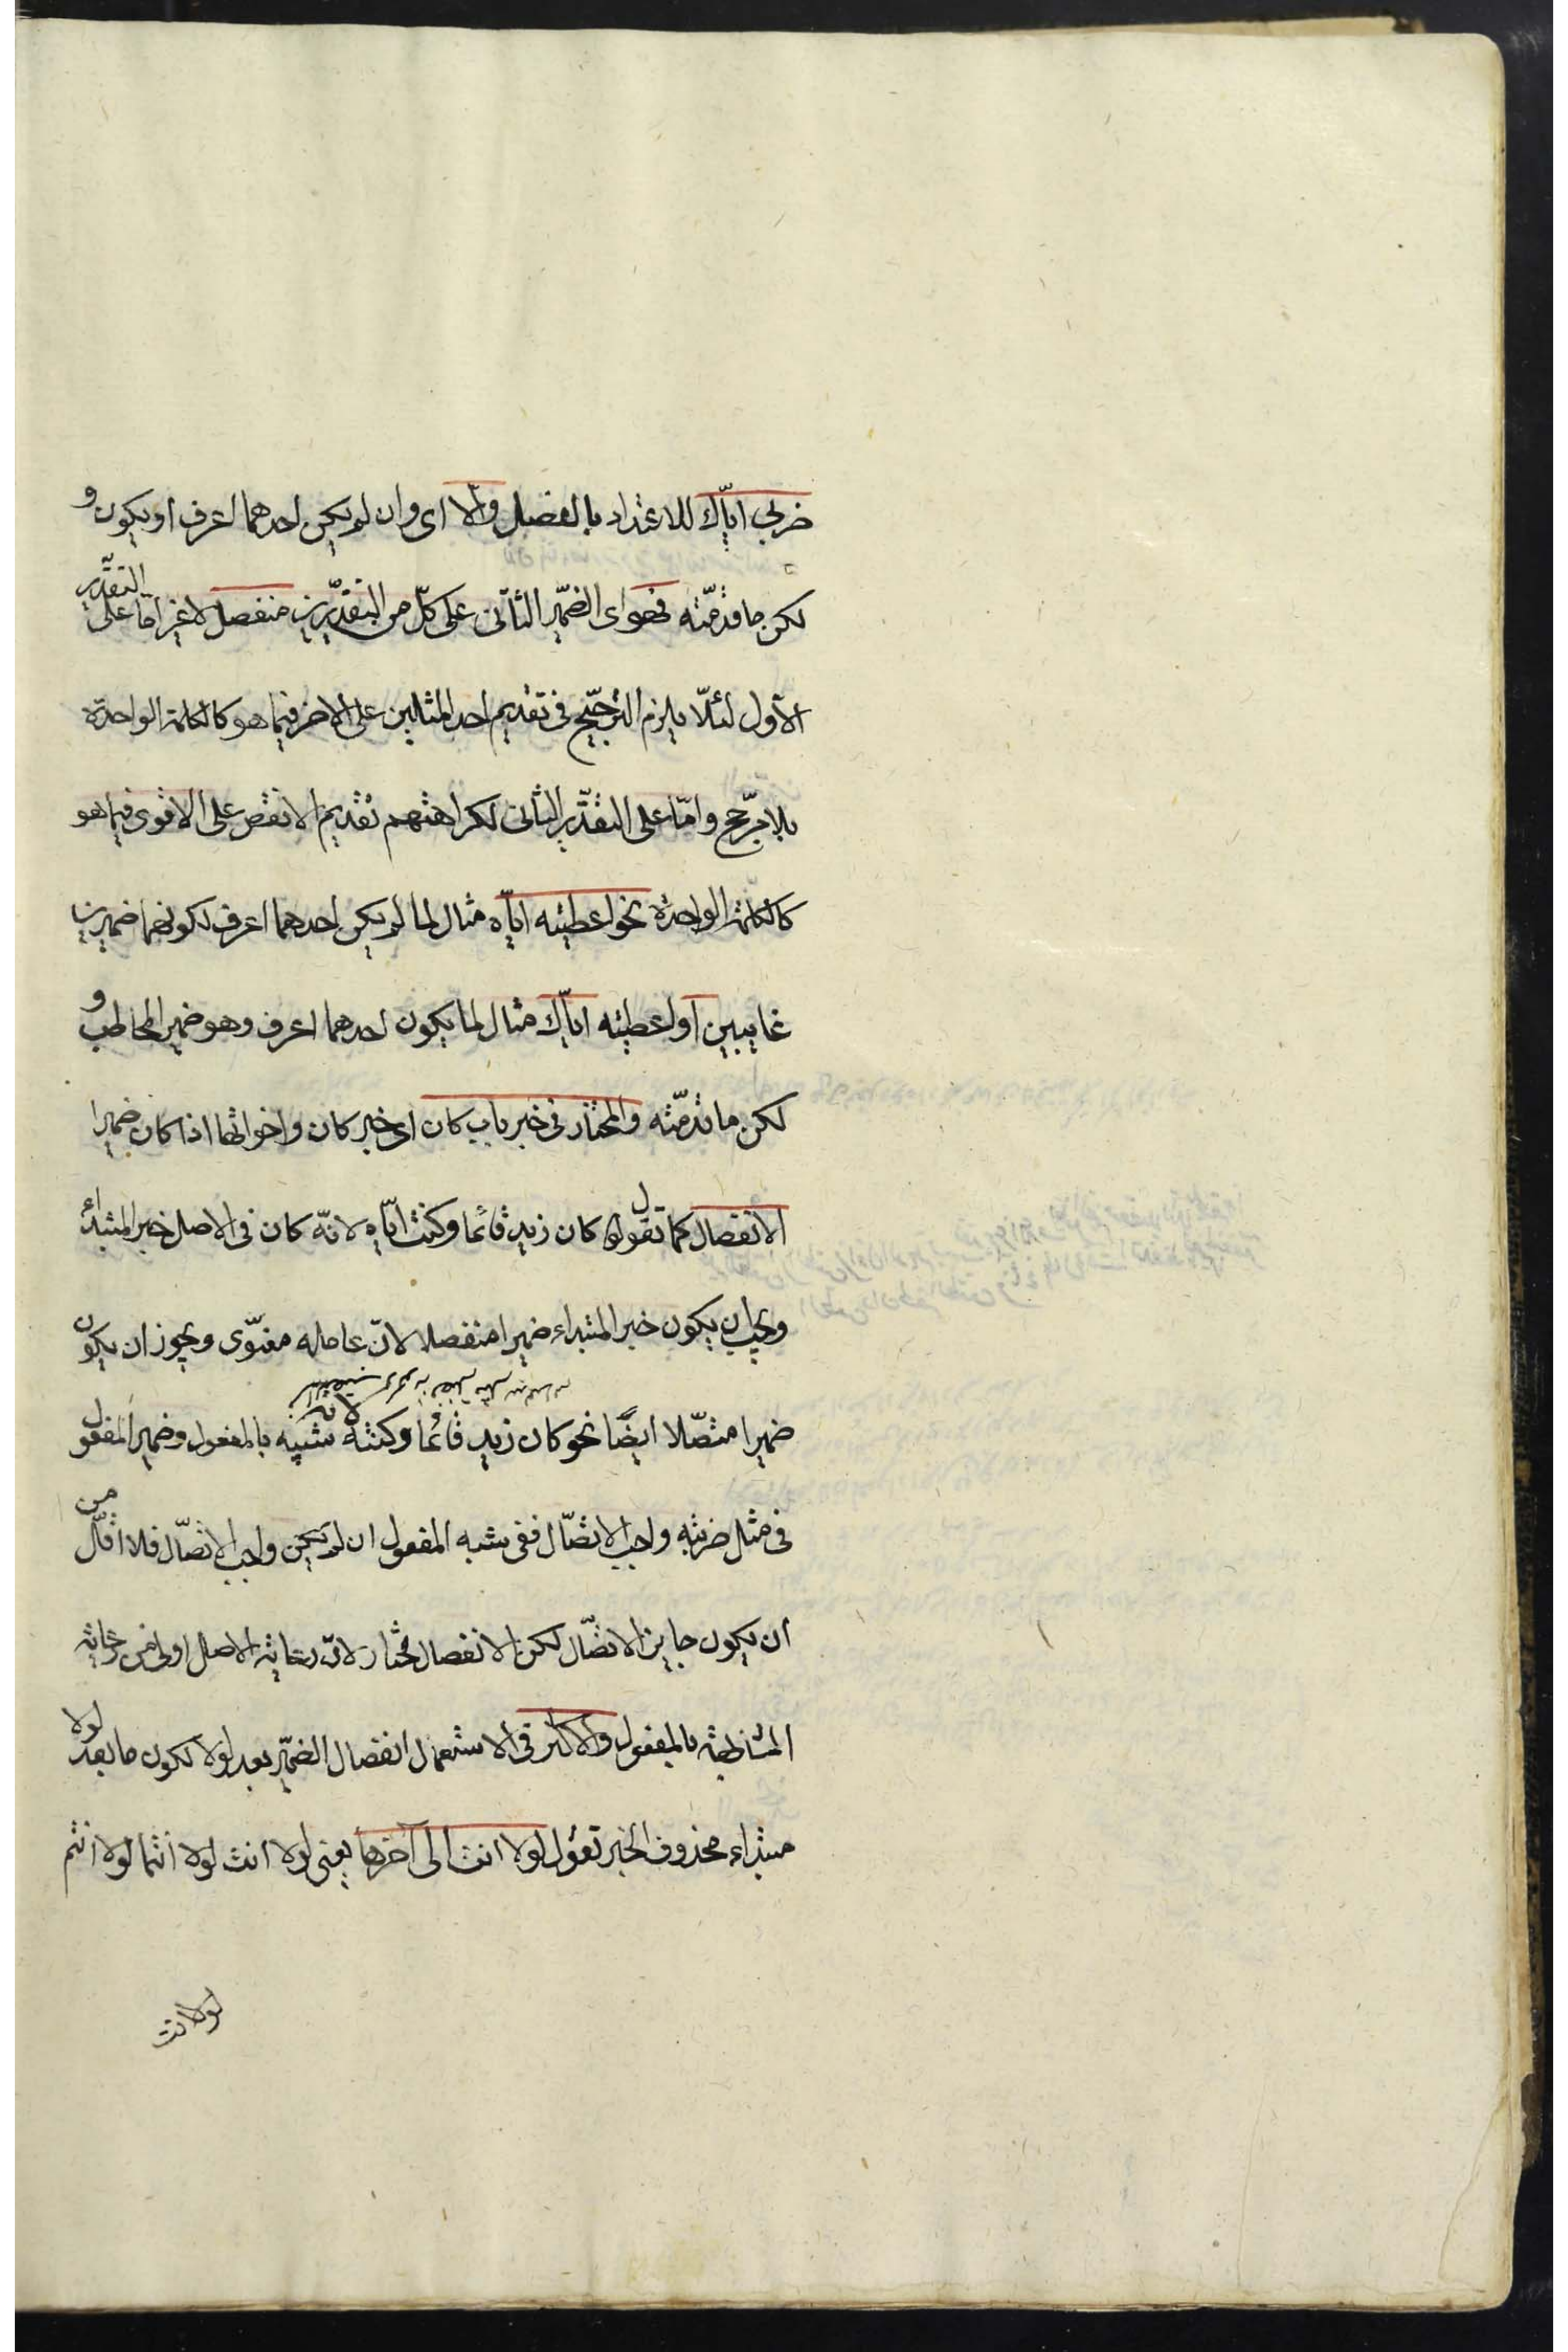 ضربى اياّك للاعتداد بالفصل والّا اى وان لم يكن احدهما اعرف او يكون و
لكن ما قدمّته فهو اى الضمير الثانى على كلّ من التقديرين منفصل لا غير امّا على التقدير
الاول لئلّا يلزم الترجيح فى تقديم احد المثلين على الاخر فيما هو كالكلمة الواحدة
بلا مرجّح وامّا على التقدير الثانى لكراهتهم تقديم الانقص على الاقوى فيما هو
كالكلمة الواحدة نحو اعطيته اياّه مثال لما لم يكن احدهما اعرف لكونهما ضميرين
غايبين او اعطيته اياّك مثال لما يكون احدهما اعرف وهو ضمير المخاطب و
لكن ما قدمّته والمختار فى خبر باب كان اى خبر كان واخواتها اذا كان ضميرا
الانفصال كما تقول كان زيد قائما وكنت اياّه لانّه كان فى الاصل خبر المبتداء
ويجب ان يكون خبر المبتداء ضميرا منفصلا لانّ عامله معنوّى ويجوز ان يكون
ضميرا متصّلا ايضًا نحو كان زيد قائما وكنته لانه شبيه بالمفعول وضمير المفعول
فى مثل ضربته واجب الاتصّال ففى شبه المفعول ان لم يكن واجب الاتصّال فلا اقلّ من
ان يكون جايز الاتصّال لكن الانفصال مختار لانّ رعاية الاصل اولى من رعاية
المشابهة بالمفعول والاكثر فى الاستعمال انفصال الضمير بعد لولا لكون ما بعد لولا
مبتداء محذوف الخبر تقول لولا انت الى آخرها يعنى لولا انت لولا انتما لولا انتم
لولا انت